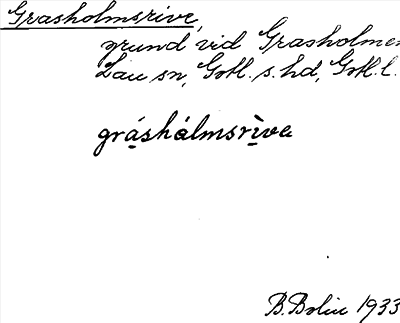 Grasholmsrive,
grund vid Grasholmen
Lau sn, Gotl. s. hd, Gotl. l.
gråshàlmsrìve
B. Bolin 1933